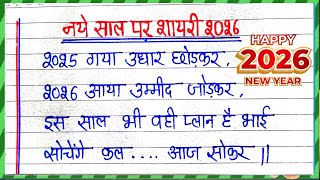 नये साल पर शायरी 2026
2025 गया उधार छोड़कर,
2026 आया उम्मीद जोड़कर,
इस साल भी वही प्लान है भाई
सोचेंगे कल.... आज सोकर ||
HAPPY
2026
NEW YEAR